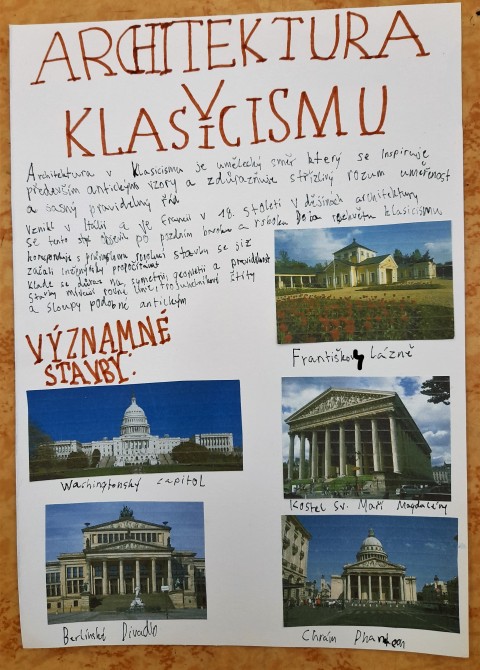 ARCHITEKTURA
V
KLASICISMU
Architektura v Klasicismu je umělecký směr který se inspiruje
především antickými vzory a zdůrazňuje střízlivý rozum uměřenost
a jasný pravidelný řád
Vznikl v Itálii a ve Francii v 18. století v dějinách architektury
se tento styl objevil po pozdním baroku a rokoku Doba rozkvětu klasicismu
koresponduje s průmyslovou revolucí stavby se již
začali inženýrsky propočítávat
Klade se důraz na symetrii, geometii a pravidelnost
stavby mívají rovné trojúhelníkové štíty
a sloupy podobné antickým
VÝZNAMNÉ
STAVBY:
Františkovy lázně
Washingtonský capitol
Kostel sv. Maří Magdalény
Berlínské Divadlo
Chrám Phanteon